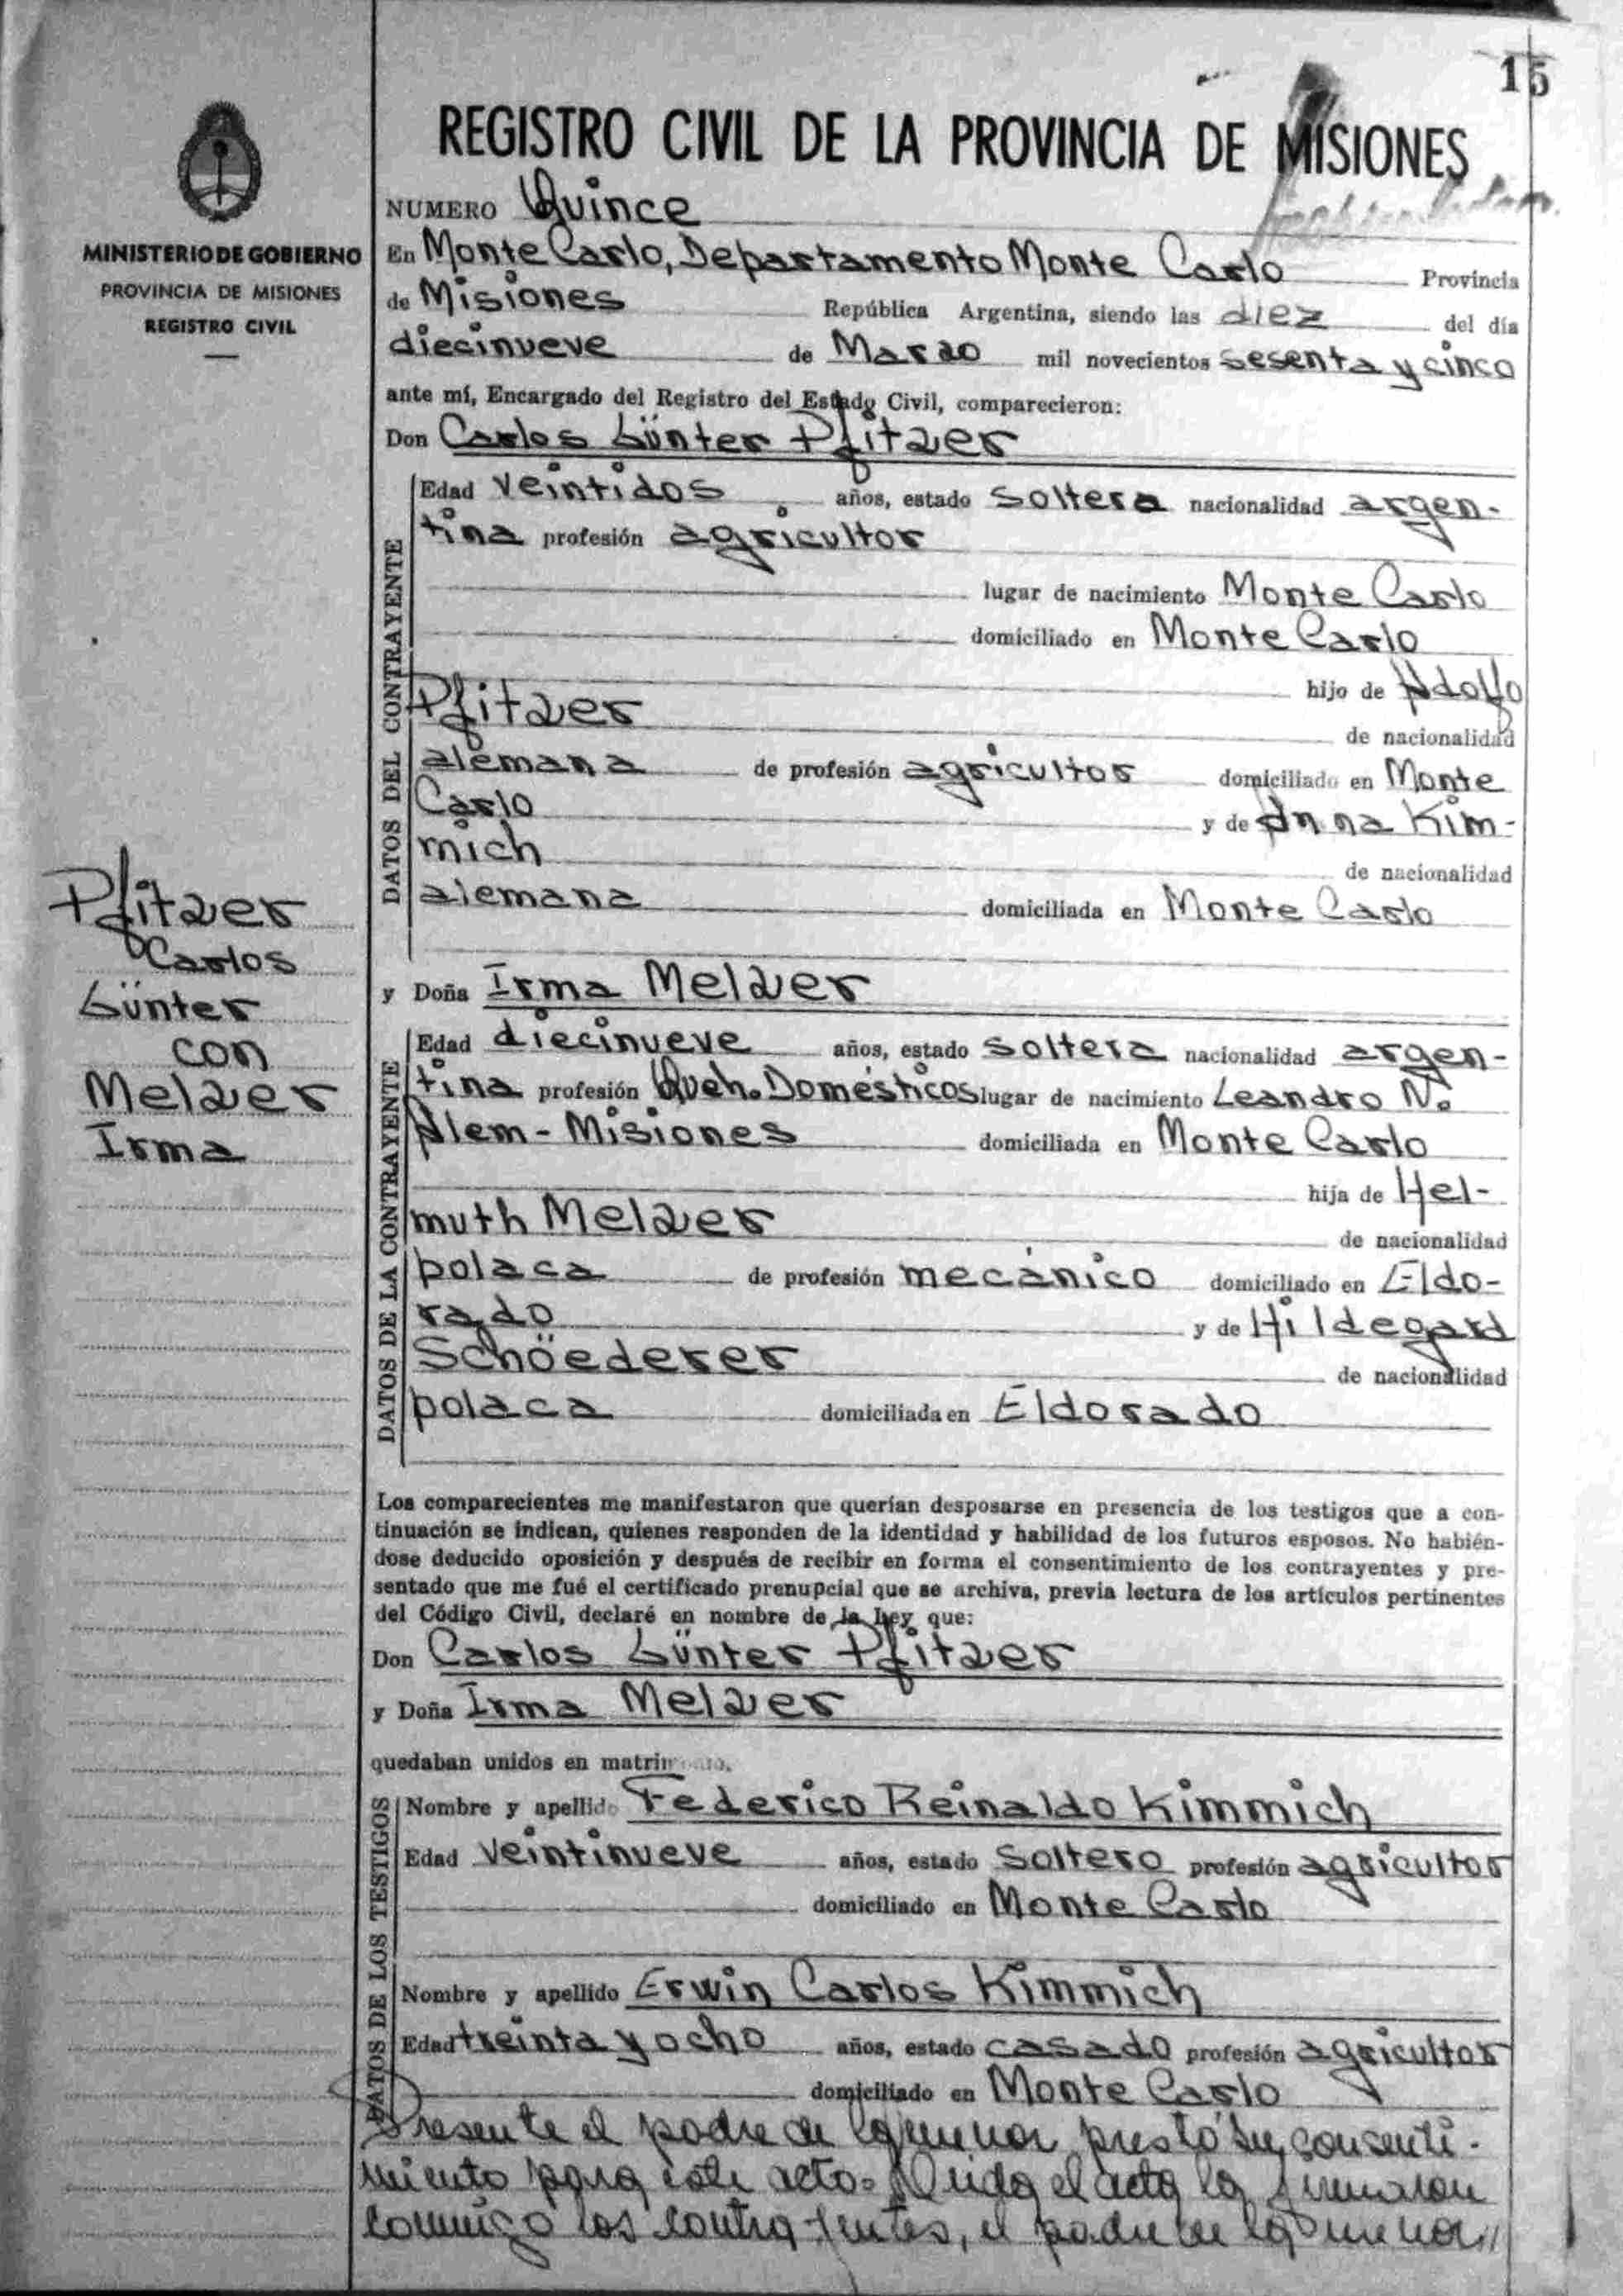 15
REGISTRO CIVIL DE LA PROVINCIA DE MISIONES
MINISTERIO DE GOBIERNO
PROVINCIA DE MISIONES
REGISTRO CIVIL
NUMERO Quince
En Monte Carlo, Departamento Monte Carlo Provincia
de Misiones República Argentina, siendo las diez del día
diecinueve de Marzo mil novecientos sesenta y cinco
ante mí, Encargado del Registro del Estado Civil, comparecieron:
Don Carlos Günter Pfitzer
DATOS DEL CONTRAYENTE
Edad veintidos años, estado soltera nacionalidad argen-
tina profesión agricultor
lugar de nacimiento Monte Carlo
domiciliado en Monte Carlo
hijo de Adolfo
Pfitzer
de nacionalidad
alemana de profesión agricultor domiciliado en Monte
Carlo y de Anna Kim-
mich
de nacionalidad
alemana domiciliada en Monte Carlo
Pfitzer
Carlos
Günter
con
Melzer
Irma
y Doña Irma Melzer
DATOS DE LA CONTRAYENTE
Edad diecinueve años, estado soltera nacionalidad argen-
tina profesión Queh. Domésticos lugar de nacimiento Leandro N.
Alem - Misiones domiciliada en Monte Carlo
hija de Hel-
muth Melzer
de nacionalidad
polaca de profesión mecánico domiciliado en Eldo-
rado y de Hildegard
Schöederer
de nacionalidad
polaca domiciliada en Eldorado
Los comparecientes me manifestaron que querían desposarse en presencia de los testigos que a con-
tinuación se indican, quienes responden de la identidad y habilidad de los futuros esposos. No habién-
dose deducido oposición y después de recibir en forma el consentimiento de los contrayentes y pre-
sentado que me fué el certificado prenupcial que se archiva, previa lectura de los artículos pertinentes
del Código Civil, declaré en nombre de la Ley que:
Don Carlos Günter Pfitzer
y Doña Irma Melzer
quedaban unidos en matrimonio.
DATOS DE LOS TESTIGOS
Nombre y apellido Federico Reinaldo Kimmich
Edad veintinueve años, estado soltero profesión agricultor
domiciliado en Monte Carlo
Nombre y apellido Erwin Carlos Kimmich
Edad treinta y ocho años, estado casado profesión agricultor
domiciliado en Monte Carlo
Presente el padre de la menor prestó su consenti-
miento para este acto. Leida el acta la firmaron
conmigo los contrayentes, el padre de la menor //